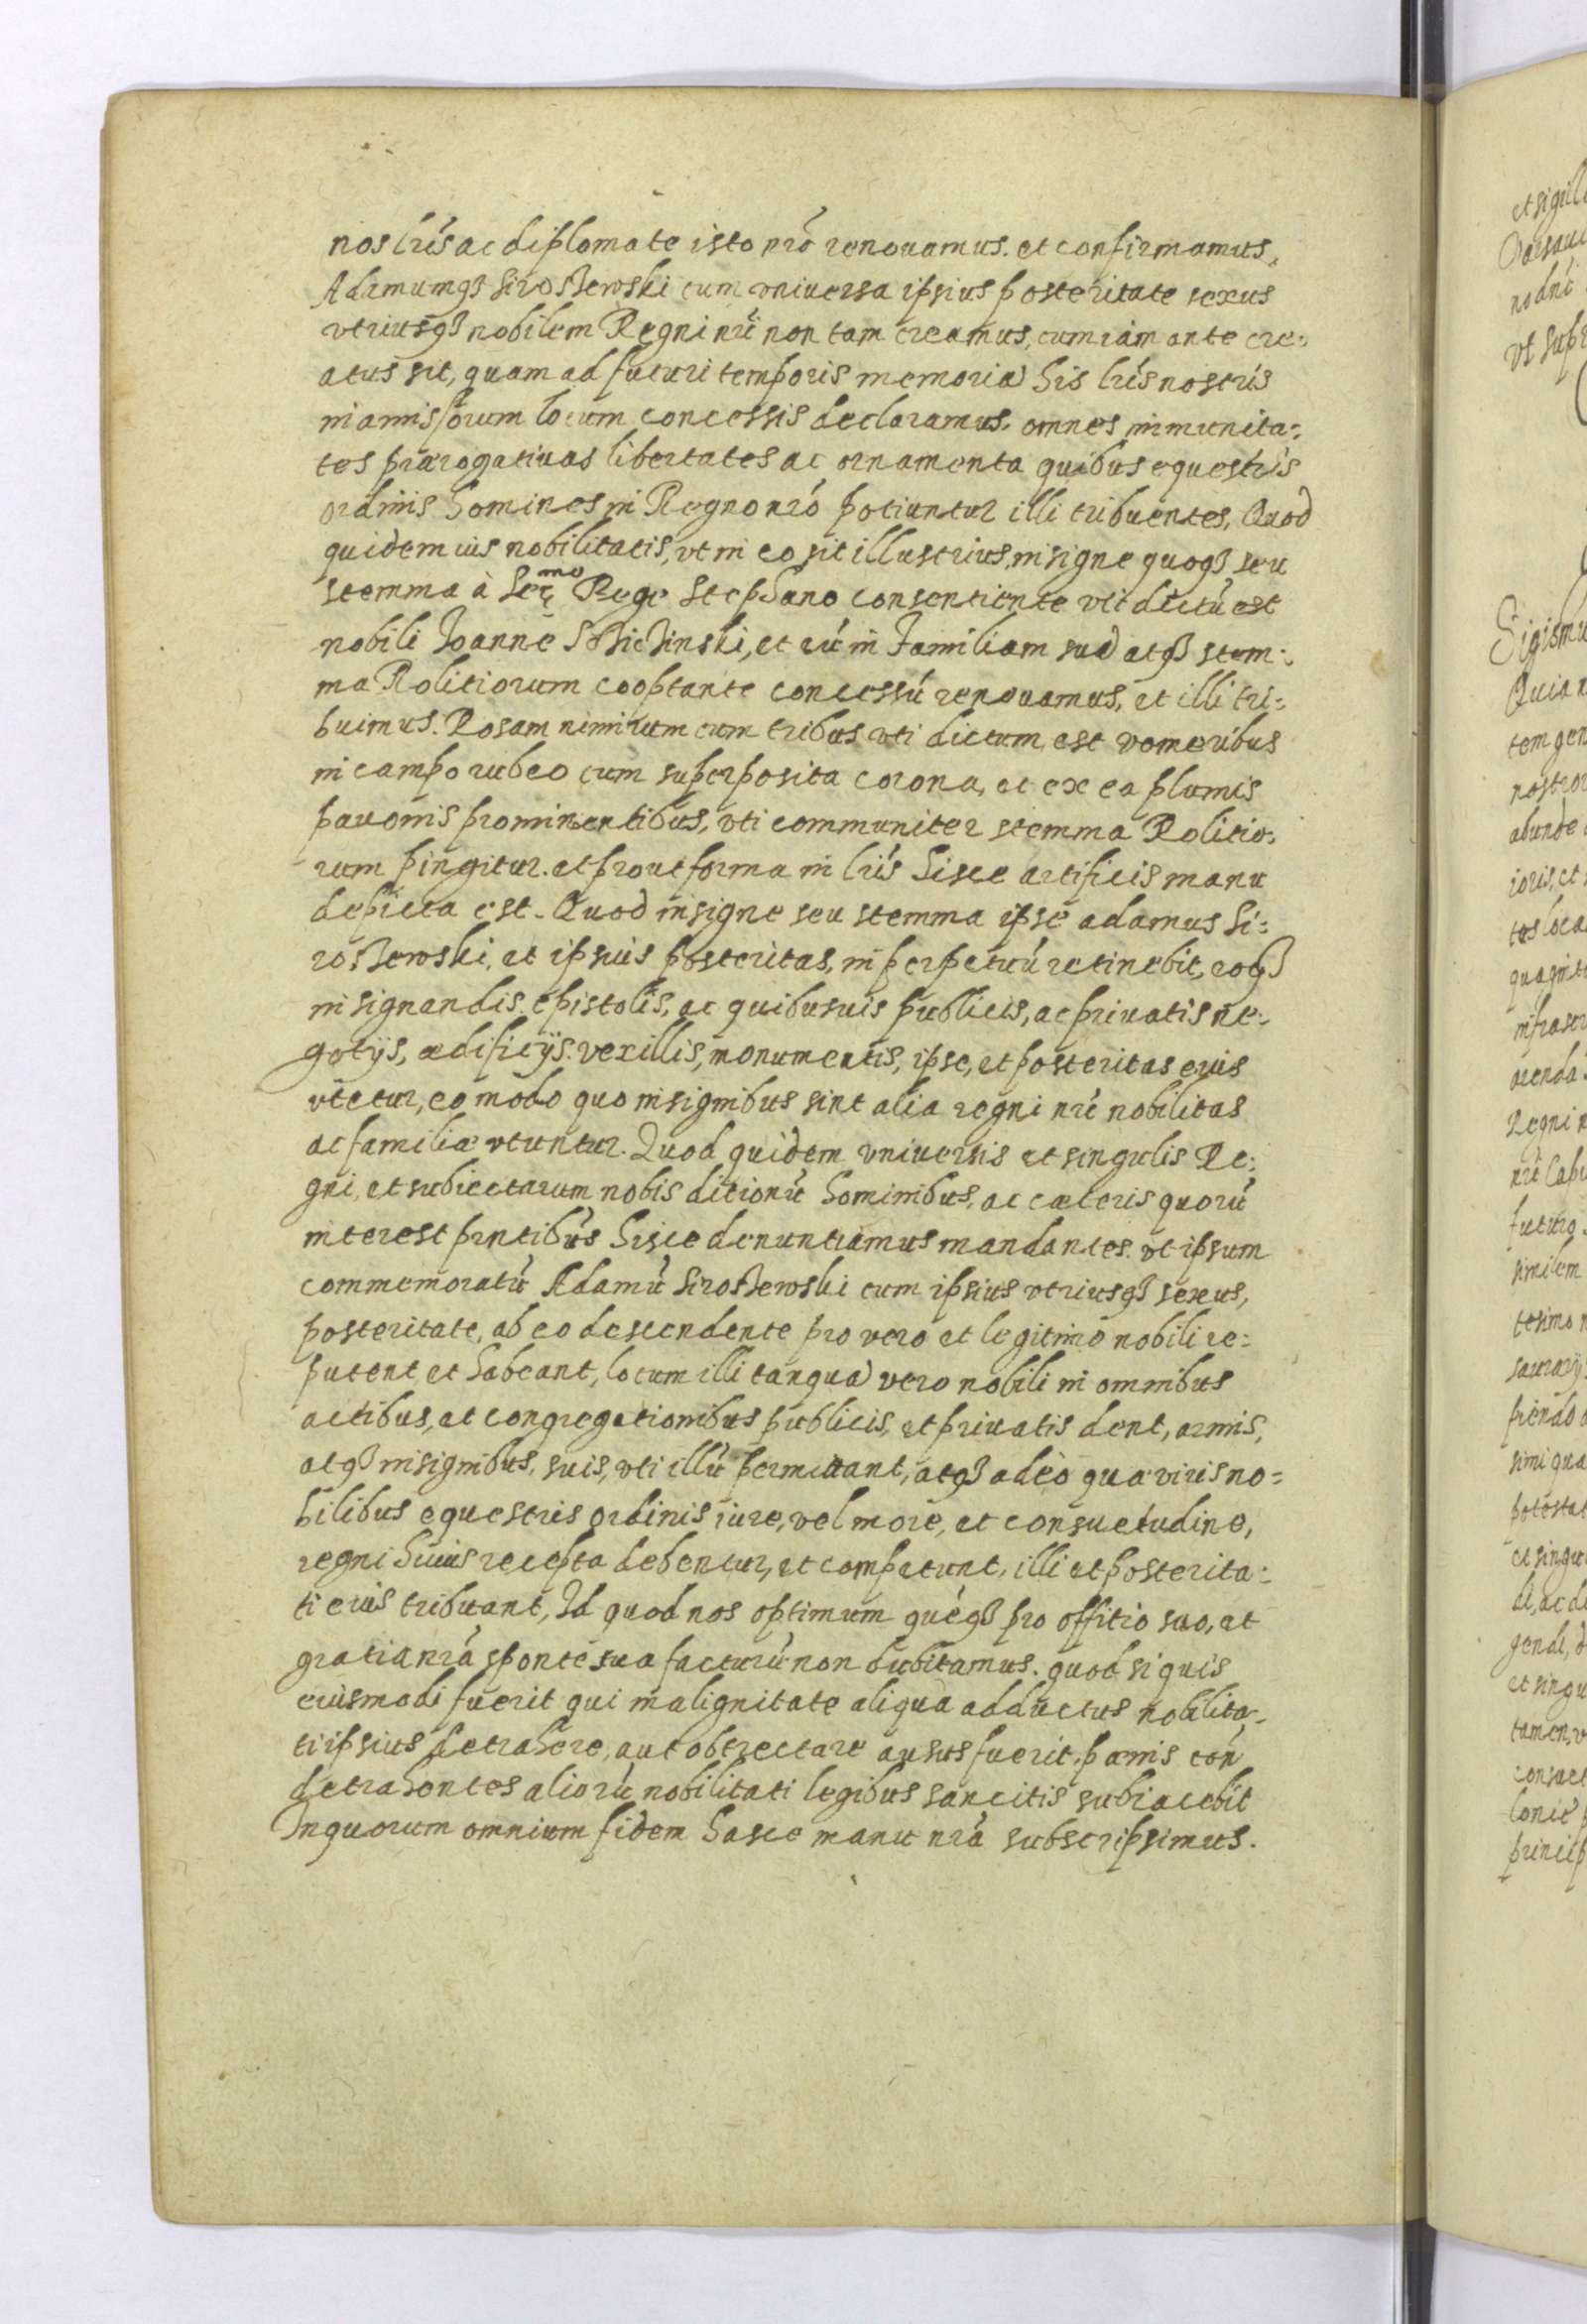 nos lrís ac diplomate isto nrō renouamus. et confirmamus,
Adamumq3 Siroszewski cum vniuersa ipsius posteritate sexus
vtriusq3 nobilem Regni nrī non tam creamus, cum iam ante cre=
atus sit, quam ad futuri temporis memoriā his lrís nostris
in amissorum locum concessis declaramus. omnes immunita=
tes prærogatiuas libertates ac ornamenta quibus equestris
ordinis homines in Regno nrō potiuntur illi tribuentes, Quod
quidem ius nobilitatis, vt in eo sit illustrius, insigne quoq3 seu
stemma à Ser^mo Rege Stephano consentiente vti dictū est
nobili Joanne, et eū in Familiam suā atq3 stem=
ma Rolitiorum cooptante concessū renouamus, et illi tri=
buimus. Rosam nimirum cum tribus vti dictum est vomeribus
in campo rubeo cum superposita corona, et ex ea plumis
pauonis prominentibus, vti communiter stemma Rolitio=
rum pingitur. et prout forma in lrís hisce artificis manu
depicta est. Quod insigne seu stemma ipse adamus Si=
roszewski, et ipsius posteritas, in perpetuū retinebit, eoq3
in signandis epistolis, ac quibusuis publicis, ac priuatis ne=
gotijs, ædificijs. vexillis, monumentis, ipse, et posteritas eius
vtetur, eo modo quo insignibus sint alia regni nrī nobilitas
ac familiæ vtuntur. Quod quidem vniuersis et singulis Re=
gni, et subiectarum nobis ditionū hominibus, ac cæteris quorū
interest pñtibus hisce denuntiamus mandantes. vt ipsum
commemoratū Adamū Siroszewski cum ipsius vtriusq3 sexus,
posteritate, ab eo descendente pro vero et legitimo nobili re=
putent, et habeant, locum illi tanquā vero nobili in omnibus
actibus, et congregationibus publicis, et priuatis dent, armis,
atq3 insignibus, suis, vti illū permittant, atq3 adeò quæ viris no=
bilibus equestris ordinis iure, vel more, et consuetudine,
regni huius recepta debentur, et competunt, illi et posterita=
ti eius tribuant, Id quod nos optimum quēq3 pro offitio suo, et
gratia nrā sponte sua facturū non dubitamus. quod si quis
eiusmodi fuerit qui malignitate aliqua adductus nobilita=
ti ipsius detrahere, aut obtrectare ausus fuerit, pœnis cōn
detrahentes aliorū nobilitati legibus sancitis subiacebit
In quorum omnium fidem hasce manu nrā subscripsimus.